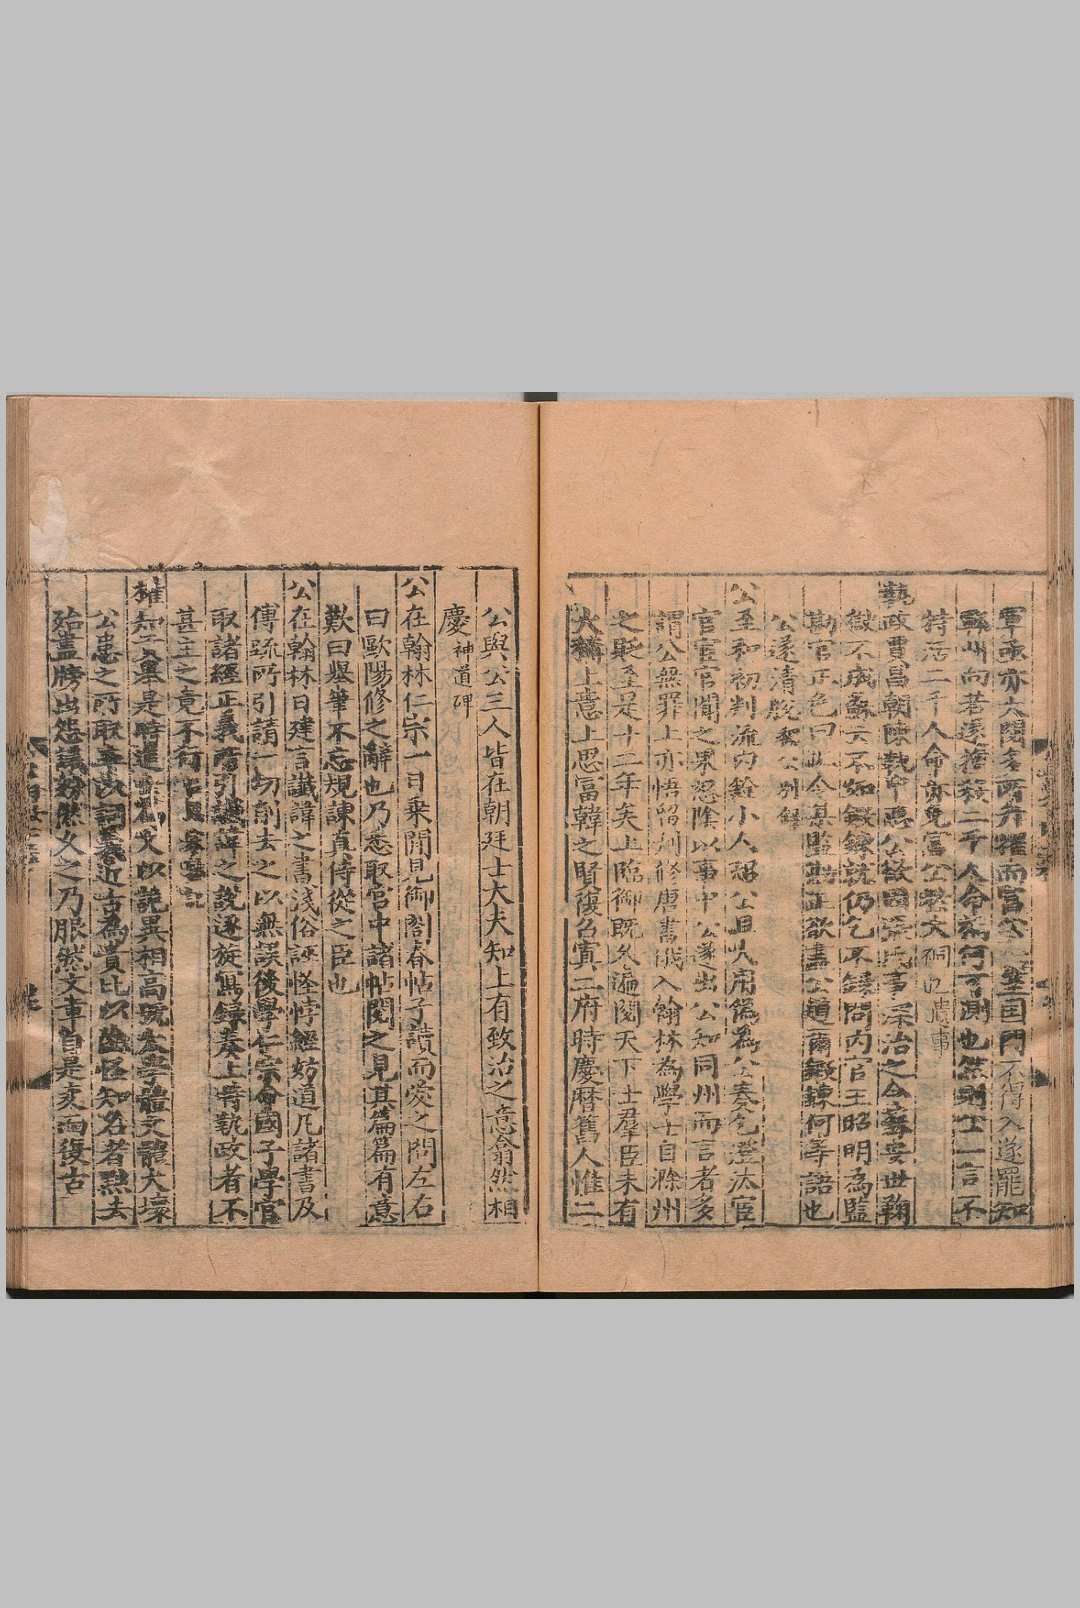 軍亦大閱多所升擢而官公塞国門不得入遂罷知
蘇州向若遂擅殺二千人命禍何可測也然則公一言不
特活二千人命亦免富公於大禍也遺事
執政賈昌朝陳執中惡公欲因張氏事深治之令蘇安世鞠
獄不成蘇云不如鍛鍊就仍乞不錄問内官王昭明為監
勘官正色曰此令某監勘正欲盡公道爾鍛鍊何等語也
公遂清脫
公至和初判流内銓小人恐公且大用偽為公奏乞澄汰宦
官宦官聞之果怒陰以事中公遂出公知同州而言者多
謂公無罪上亦悟留刊修唐書俄入翰林為學士自滁州
之貶至是十二年矣上臨御既久遍閱天下士羣臣未有
大稱上意上思富韓之賢復召寘二府時慶曆舊人惟二
公與公三人皆在朝廷士大夫知上有致治之意翕然相
慶神道碑
公在翰林仁宗一日乗閒見御閣春帖子讀而愛之問左右
曰歐陽修之辭也乃悉取宮中諸帖閱之見其篇篇有意
歎曰舉筆不忘規諫真侍從之臣也
公在翰林日建言讖緯之書淺俗誣怪悖經妨道凡諸書及
傳疏所引請一切削去之以無誤後學仁宗命國子學官
取諸經正義所引讖緯之說逐旋寫錄奏上時執政者不
甚主之竟不行
權知貢舉是時進士為文以詭異相高號太學體文體大壞
公患之所取率以詞義近古為貴比以險怪知名者黜去
殆盡牓出怨議紛然久之乃服然文章自是變而復古